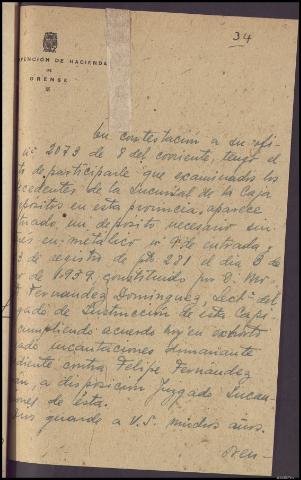 34
RVENCIÓN DE HACIENDA
DE
ORENSE
En contestación a su ofi-
nº 2073 de 8 del corriente, tengo el
de participarle que examinados los
cedentes de la Sucursal de la Caja
epósitos en esta provincia, aparece
un depósito necesario sin
en metálico nº 9 de entrada,
3 de registro de pts 281 el día 8 de
de 1939, constituido por D.
Fernandez Dominguez, Sectº del
gado de Instrucción de esta Capi-
cumpliendo acuerdo hoy en exhorto
incautaciones dimanante
diente contra Felipe Fernandez
a disposición Juzgado Incau-
ones de ésta.
guarde a V.S. muchos años.
Oren-